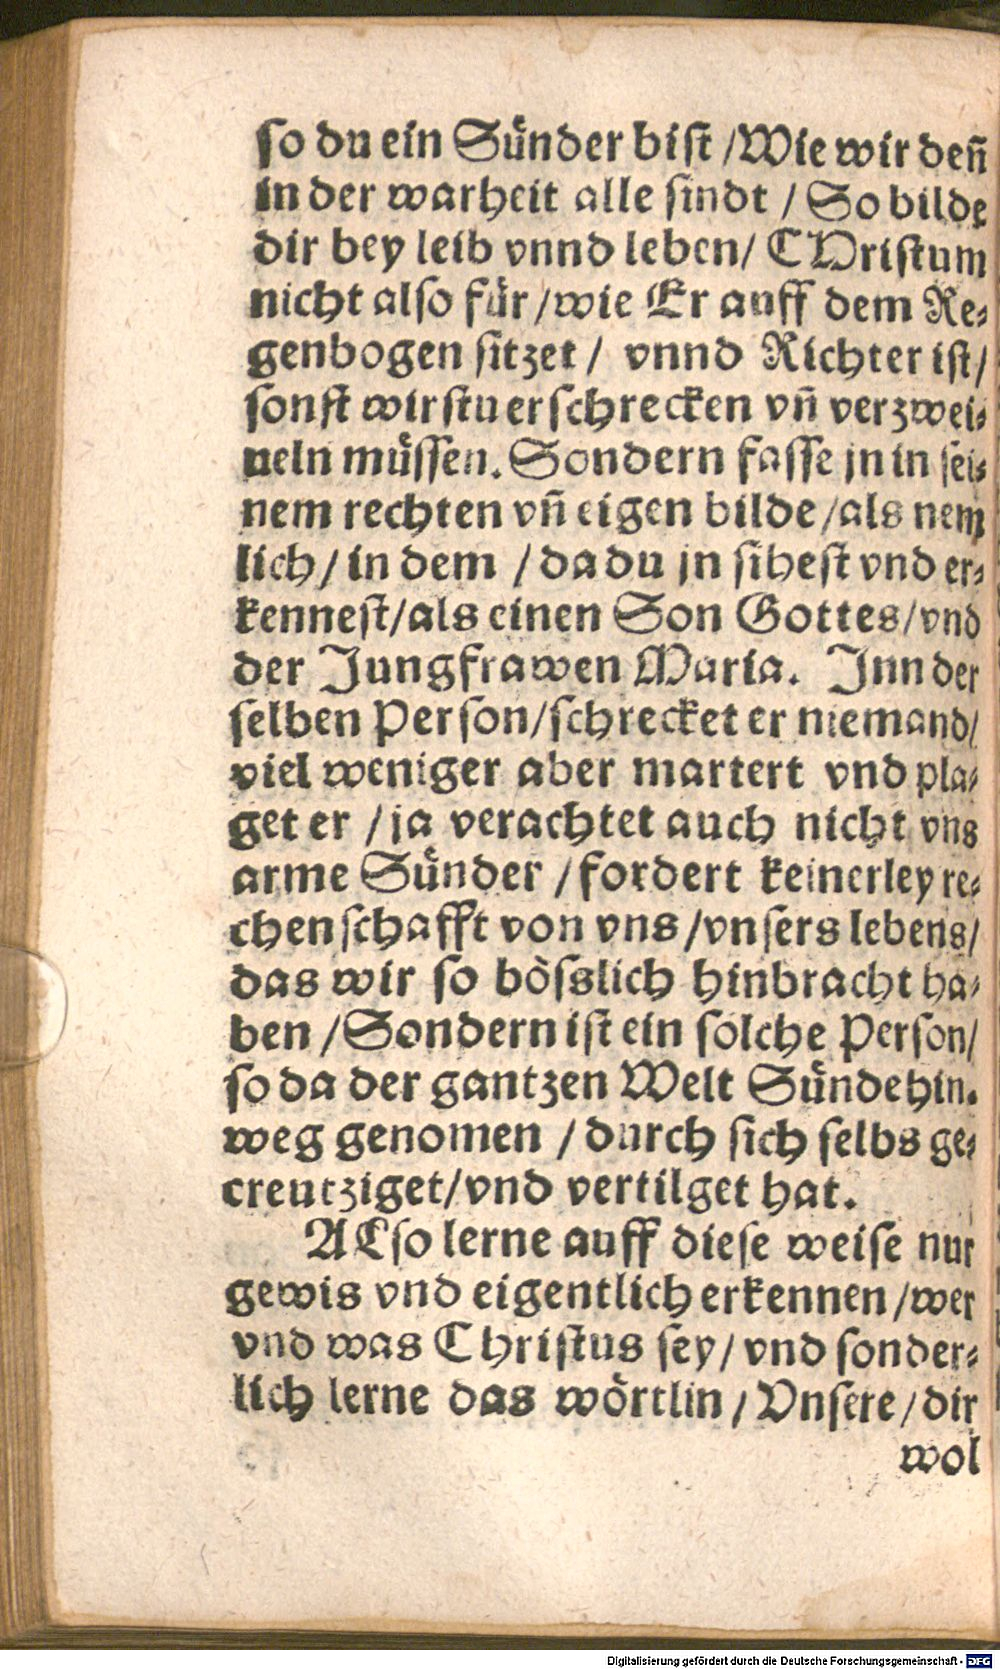 so du ein Sünder bist /Wie wir deñ
in der warheit alle sindt / So bilde
dir bey leib vnnd leben/ CHristum
nicht also für /wie Er auff dem Re⸗
genbogen sitzet / vnnd Richter ist/
sonst wirstu erschrecken vñ verzwei⸗
ueln müssen. Sondern fasse jn in sei⸗
nem rechten vñ eigen bilde /als nem
lich / in dem / da du jn sihest vnd er⸗
kennest/als einen Son Gottes/vnd
der Jungfrawen Maria. Inn der
selben Person/schrecket er niemand/
viel weniger aber martert vnd pla⸗
get er / ja verachtet auch nicht vns
arme Sünder / fordert keinerley re⸗
chenschafft von vns /vnsers lebens/
das wir so bösslich hinbracht ha⸗
ben /Sondern ist ein solche Person/
so da der gantzen Welt Sünde hin.
weg genomen / durch sich selbs ge⸗
creutziget/vnd vertilget hat.
ALso lerne auff diese weise nur
gewis vnd eigentlich erkennen /wer
vnd was Christus sey/ vnd sonder⸗
lich lerne das wörtlin / Vnsere /dir
wol
Digitalisierung gefördert durch die Deutsche Forschungsgemeinschaft - DFG